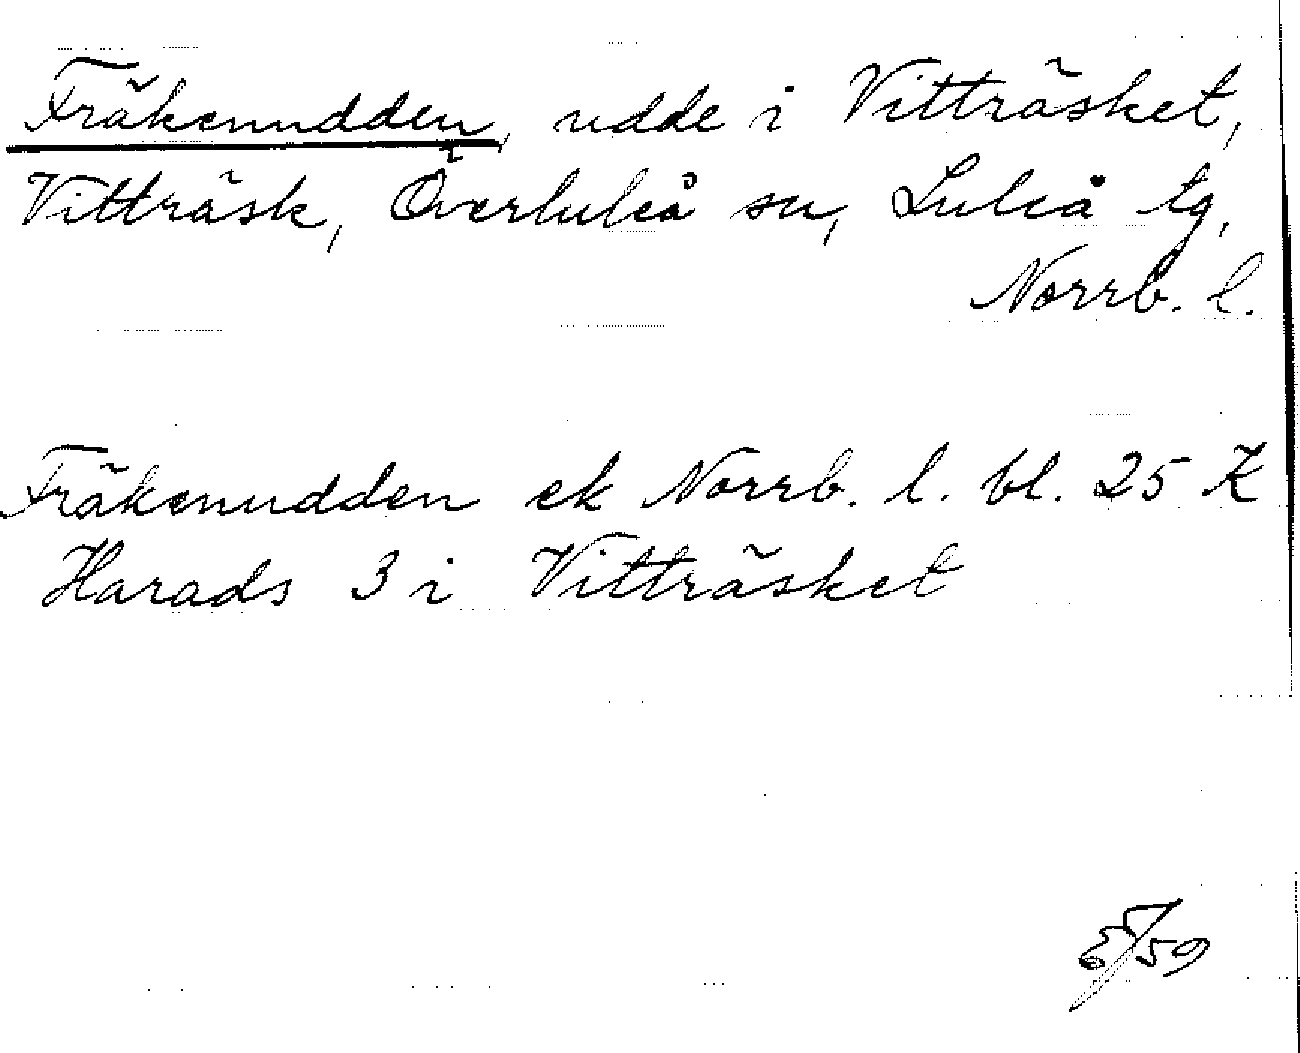 Fräkenudden, udde i Vitträsket,
Vitträsk, Överluleå sn, Luleå tg,
Norrb. l.
Fräkenudden ek Norrb. l. bl. 25 K
Harads 3 i Vitträsket